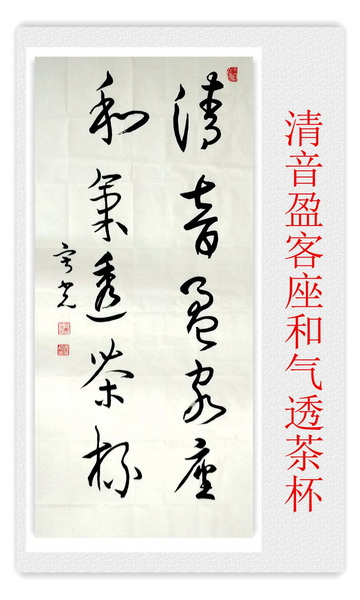 清音盈客座
和氣透茶杯
清音盈客座和气透茶杯